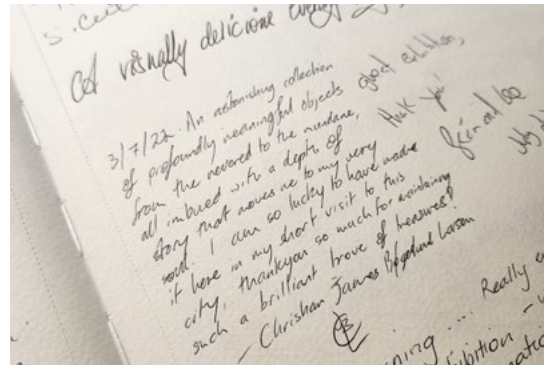 A visually delicious
3/7/22. An astonishing collection
of profoundly meaningful objects
from the revered to the mundane,
all imbued with a depth of
story that moves me to my very
soul. I am so lucky to have made
it here in my short visit to this
city, thankyou so much for maintaining
such a brilliant trove of treasures!
- Christian James Larson
Great exhibition,
thank you!
and
Really